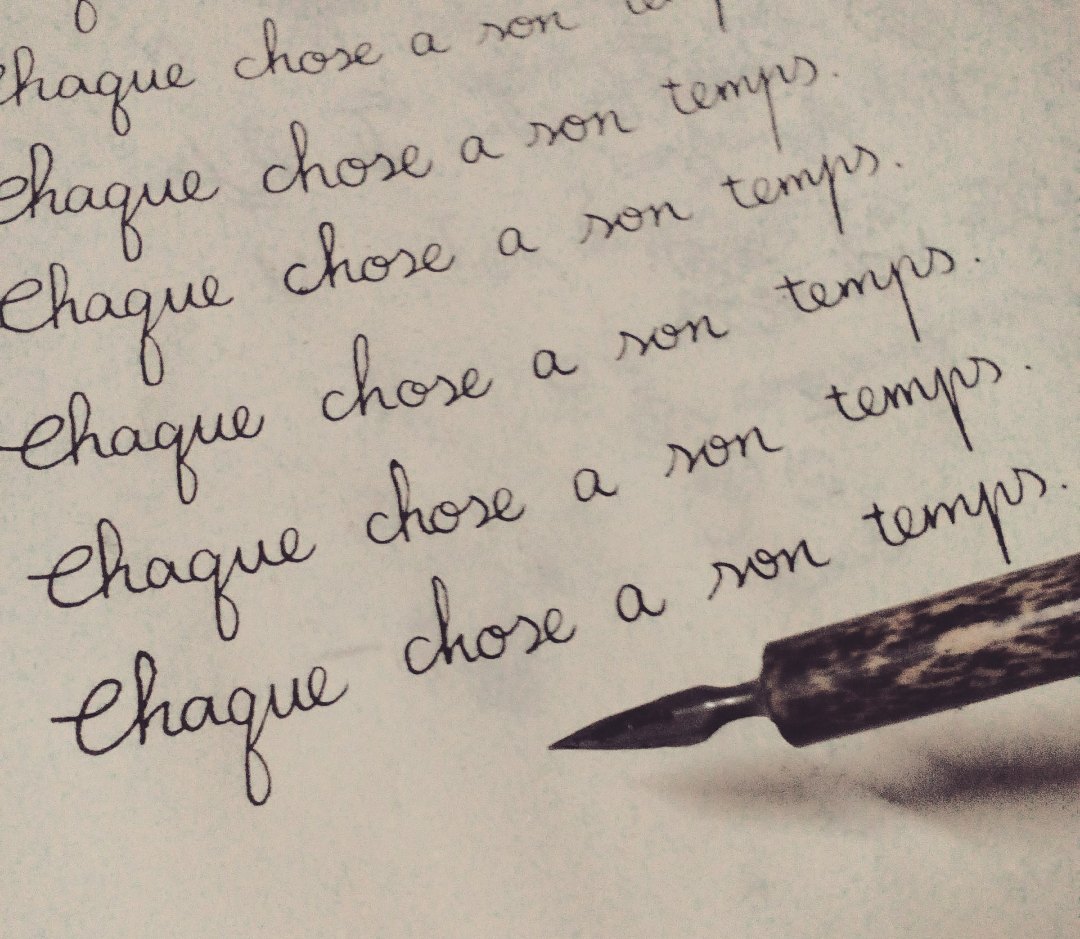 Chaque chose a son
Chaque chose a son temps.
Chaque chose a son temps.
Chaque chose a son temps.
Chaque chose a son temps.
Chaque chose a son temps.